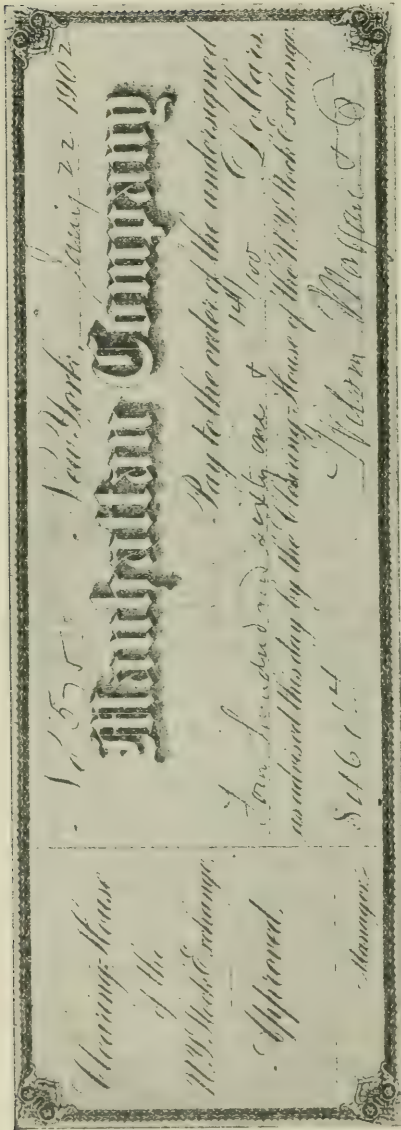 Clearing-House
of the
N.Y. Stock Exchange.
Approved.
Manager.
No 575 New-York, Jany 22 1902
Manhattan Company
Pay to the order of the undersigned
Four hundred sixty one & 14/100 Dollars.
as advised this day by the Clearing-House of the N.Y. Stock Exchange.
$461.14